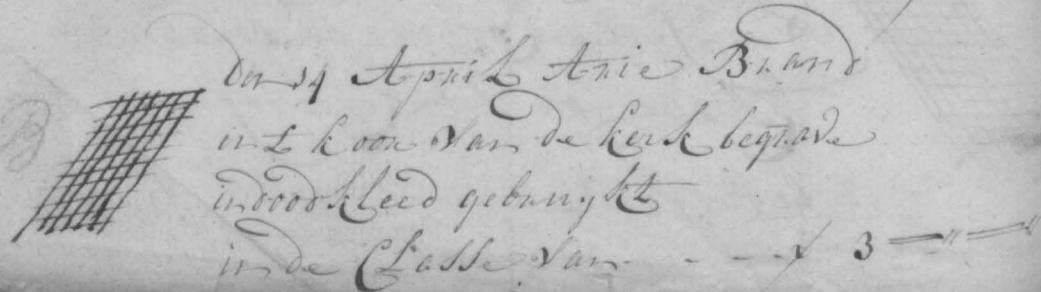 den 14 April Arie Brand
int koor van de kerk begrave
indoodkleed gebruijkt
in de Classe van - - - ƒ 3 —"—"